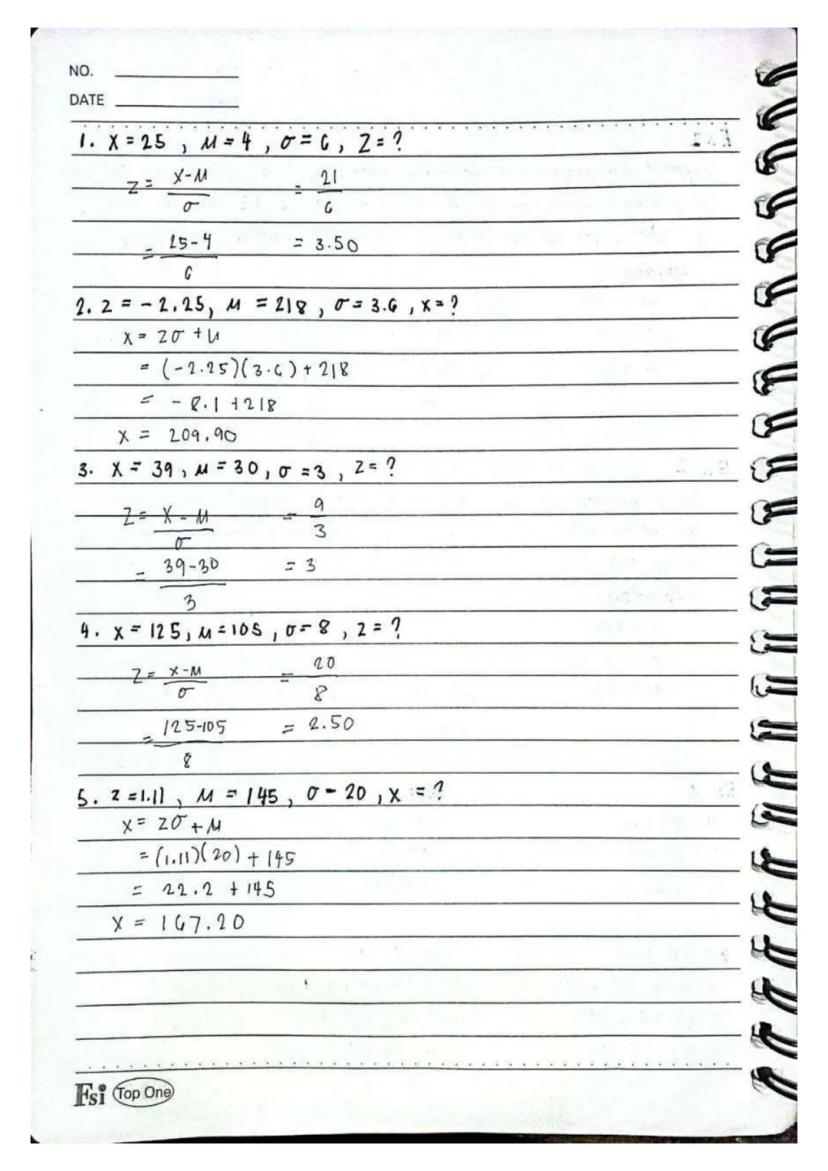 NO.
DATE
1. X = 25 , μ = 4 , σ = 6 , Z = ?
Z = X-μ / σ = 21 / 6
= 25-4 / 6 = 3.50
2. Z = -2.25, μ = 218 , σ = 3.6 , X = ?
X = Zσ + μ
= (-2.25)(3.6) + 218
= -8.1 + 218
X = 209.90
3. X = 39 , μ = 30 , σ = 3 , Z = ?
Z = X - μ / σ = 9 / 3
= 39-30 / 3 = 3
4. X = 125 , μ = 105 , σ = 8 , Z = ?
Z = X-μ / σ = 20 / 8
= 125-105 / 8 = 2.50
5. Z = 1.11 , μ = 145 , σ = 20 , X = ?
X = Zσ + μ
= (1.11)(20) + 145
= 22.2 + 145
X = 167.20
Fsi Top One